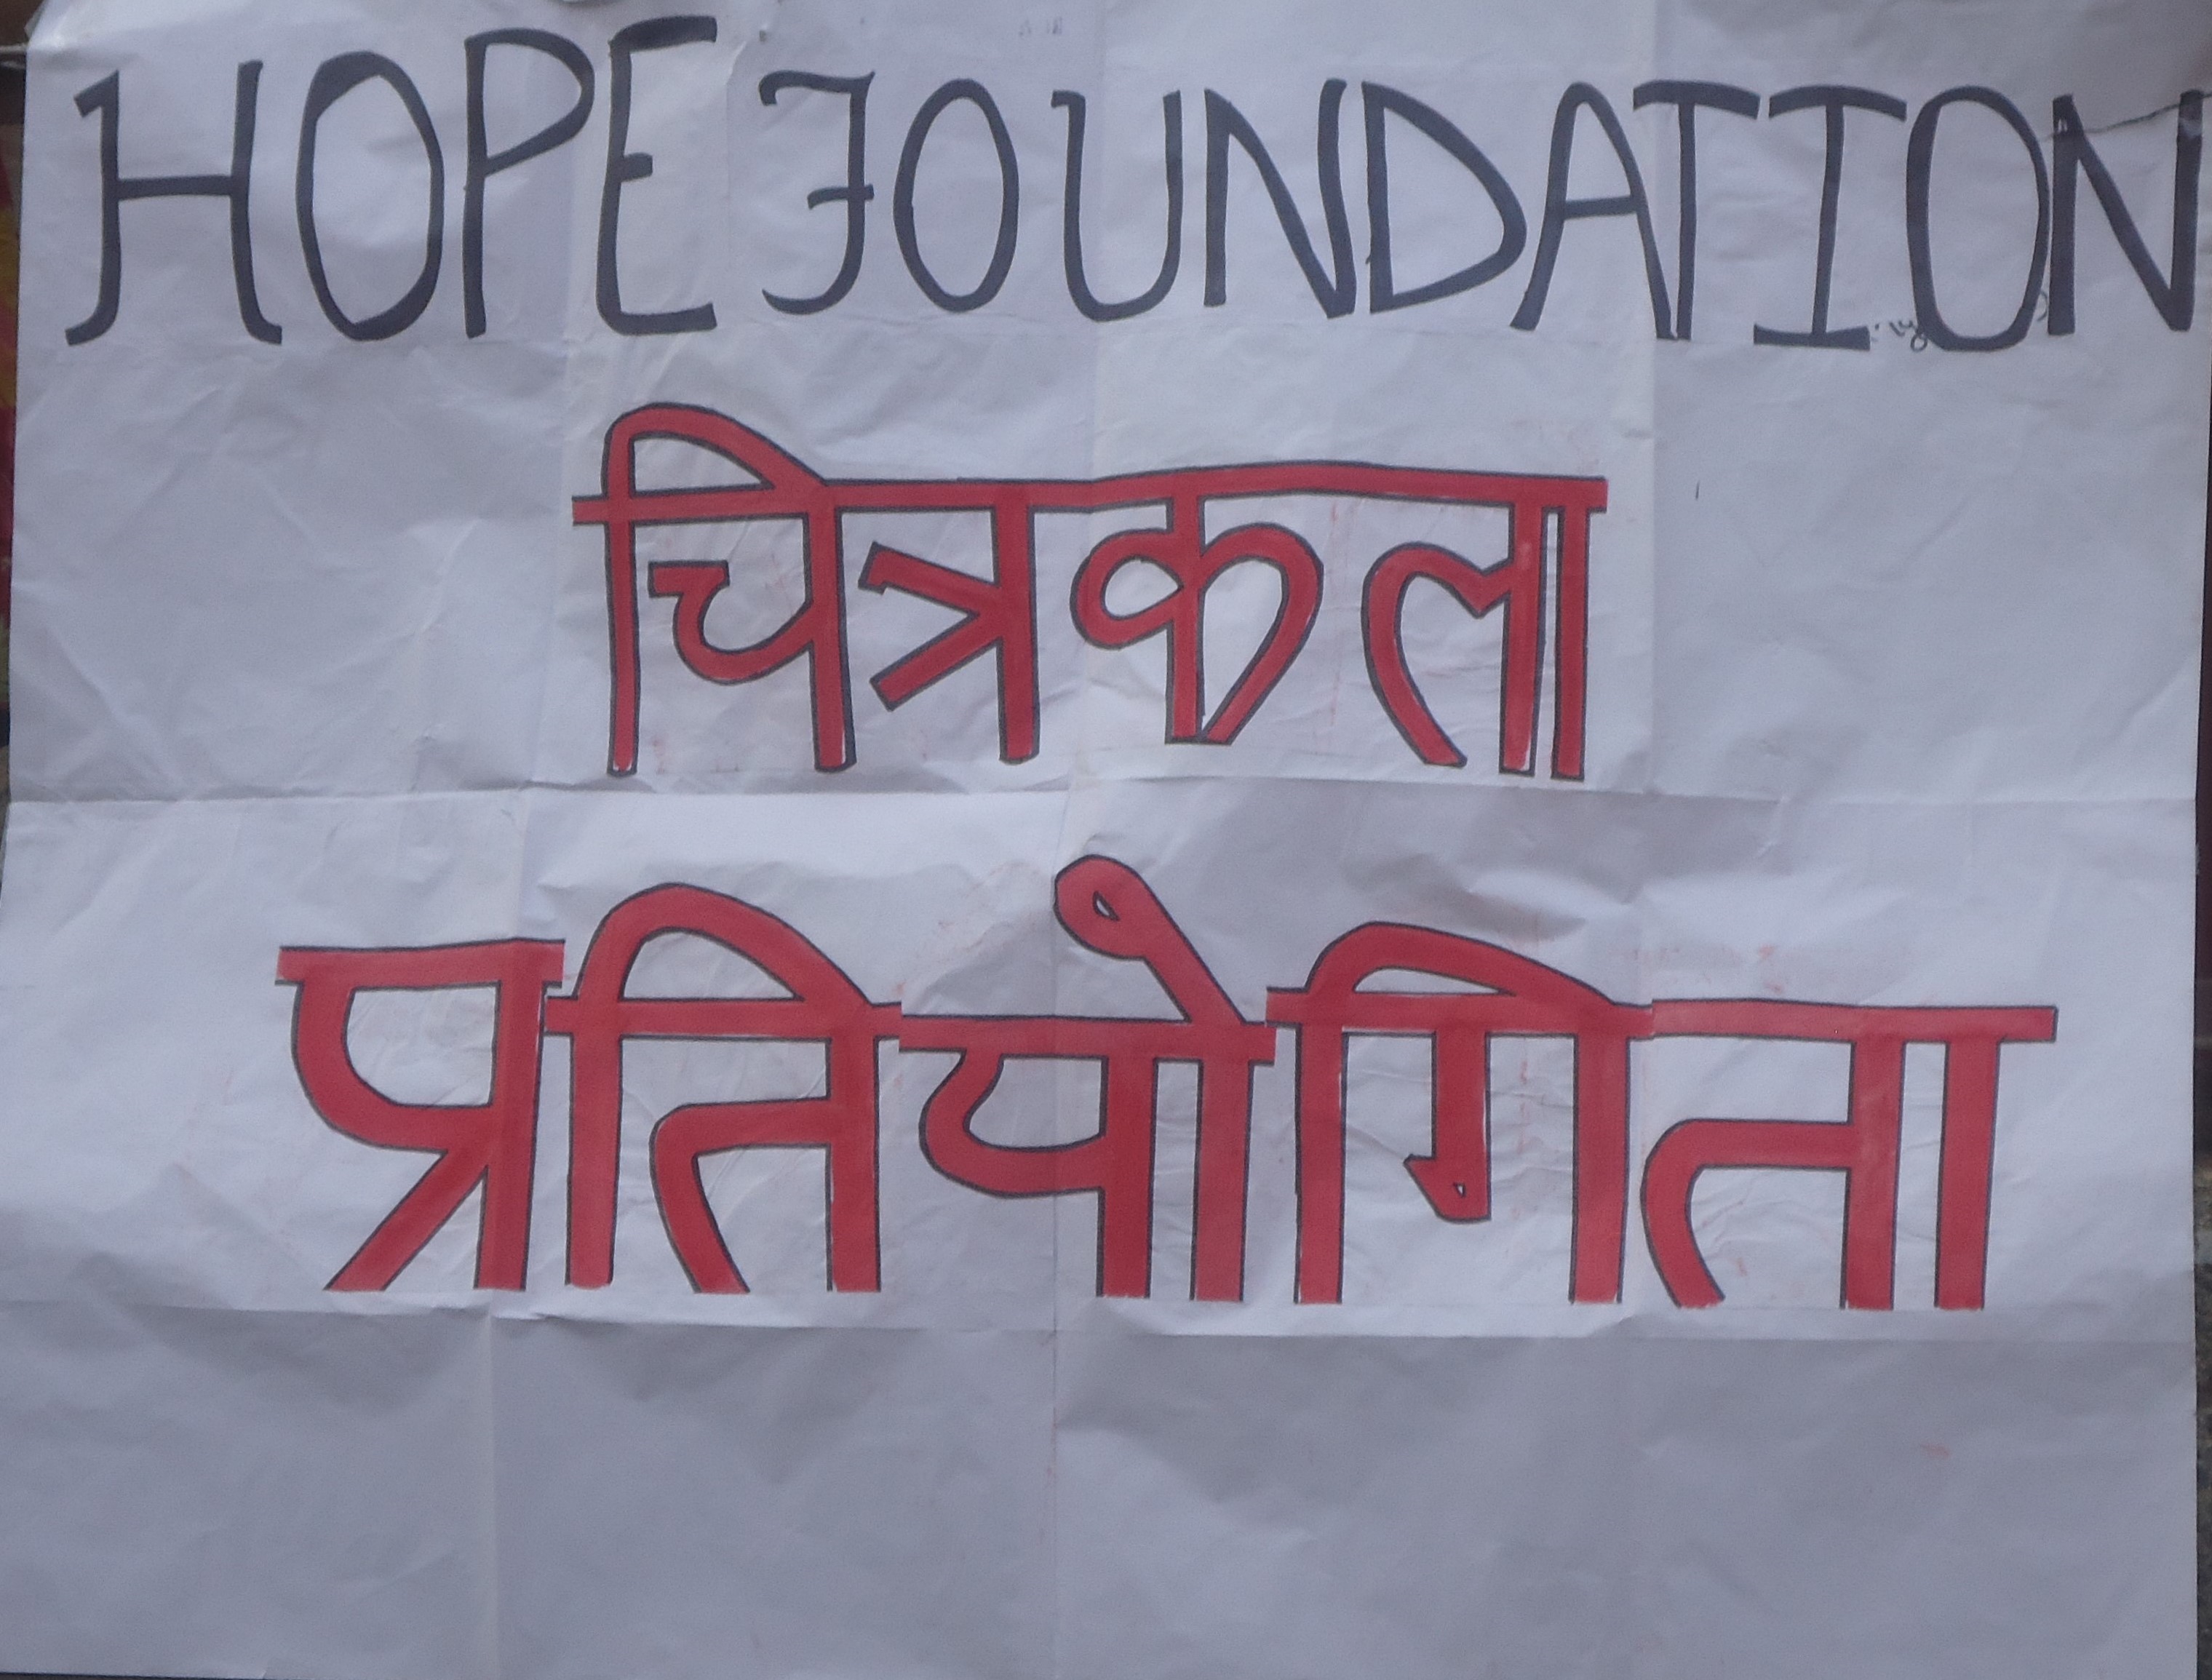 HOPE FOUNDATION
चित्रकला
प्रतियोगिता